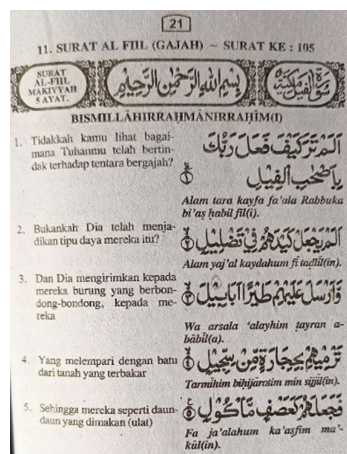 21
11. SURAT AL FIIL (GAJAH) ~ SURAT KE : 105
SURAT
AL-FIIL
MAKIYYAH
5 AYAT.
بِسْمِ اللهِ الرَّحْمٰنِ الرَّحِيْمِ
سورة الفيل مكية
BISMILLÂHIRRAHMÂNIRRAHÎM(I)
1. Tidakkah kamu lihat bagai-
mana Tuhanmu telah bertin-
dak terhadap tentara bergajah?
اَلَمْ تَرَ كَيْفَ فَعَلَ رَبُّكَ
بِاَصْحٰبِ الْفِيْلِ
Alam tara kayfa fa'ala Rabbuka
bi'aṣ ḥabil fîl(i).
2. Bukankah Dia telah menja-
dikan tipu daya mereka itu?
اَلَمْ يَجْعَلْ كَيْدَهُمْ فِيْ تَضْلِيْلٍ
Alam yaj'al kaydahum fî tadlîl(in).
3. Dan Dia mengirimkan kepada
mereka burung yang berbon-
dong-bondong, kepada me-
reka
وَاَرْسَلَ عَلَيْهِمْ طَيْرًا اَبَابِيْلَ
Wa arsala 'alayhim tayran a-
bâbîl(a).
4. Yang melempari dengan batu
dari tanah yang terbakar
تَرْمِيْهِمْ بِحِجَارَةٍ مِّنْ سِجِّيْلٍ
Tarmîhim bihijâratim min sijjîl(in).
5. Sehingga mereka seperti daun-
daun yang dimakan (ulat)
فَجَعَلَهُمْ كَعَصْفٍ مَّأْكُوْلٍ
Fa ja'alahum ka'aṣfim ma'-
kûl(in).